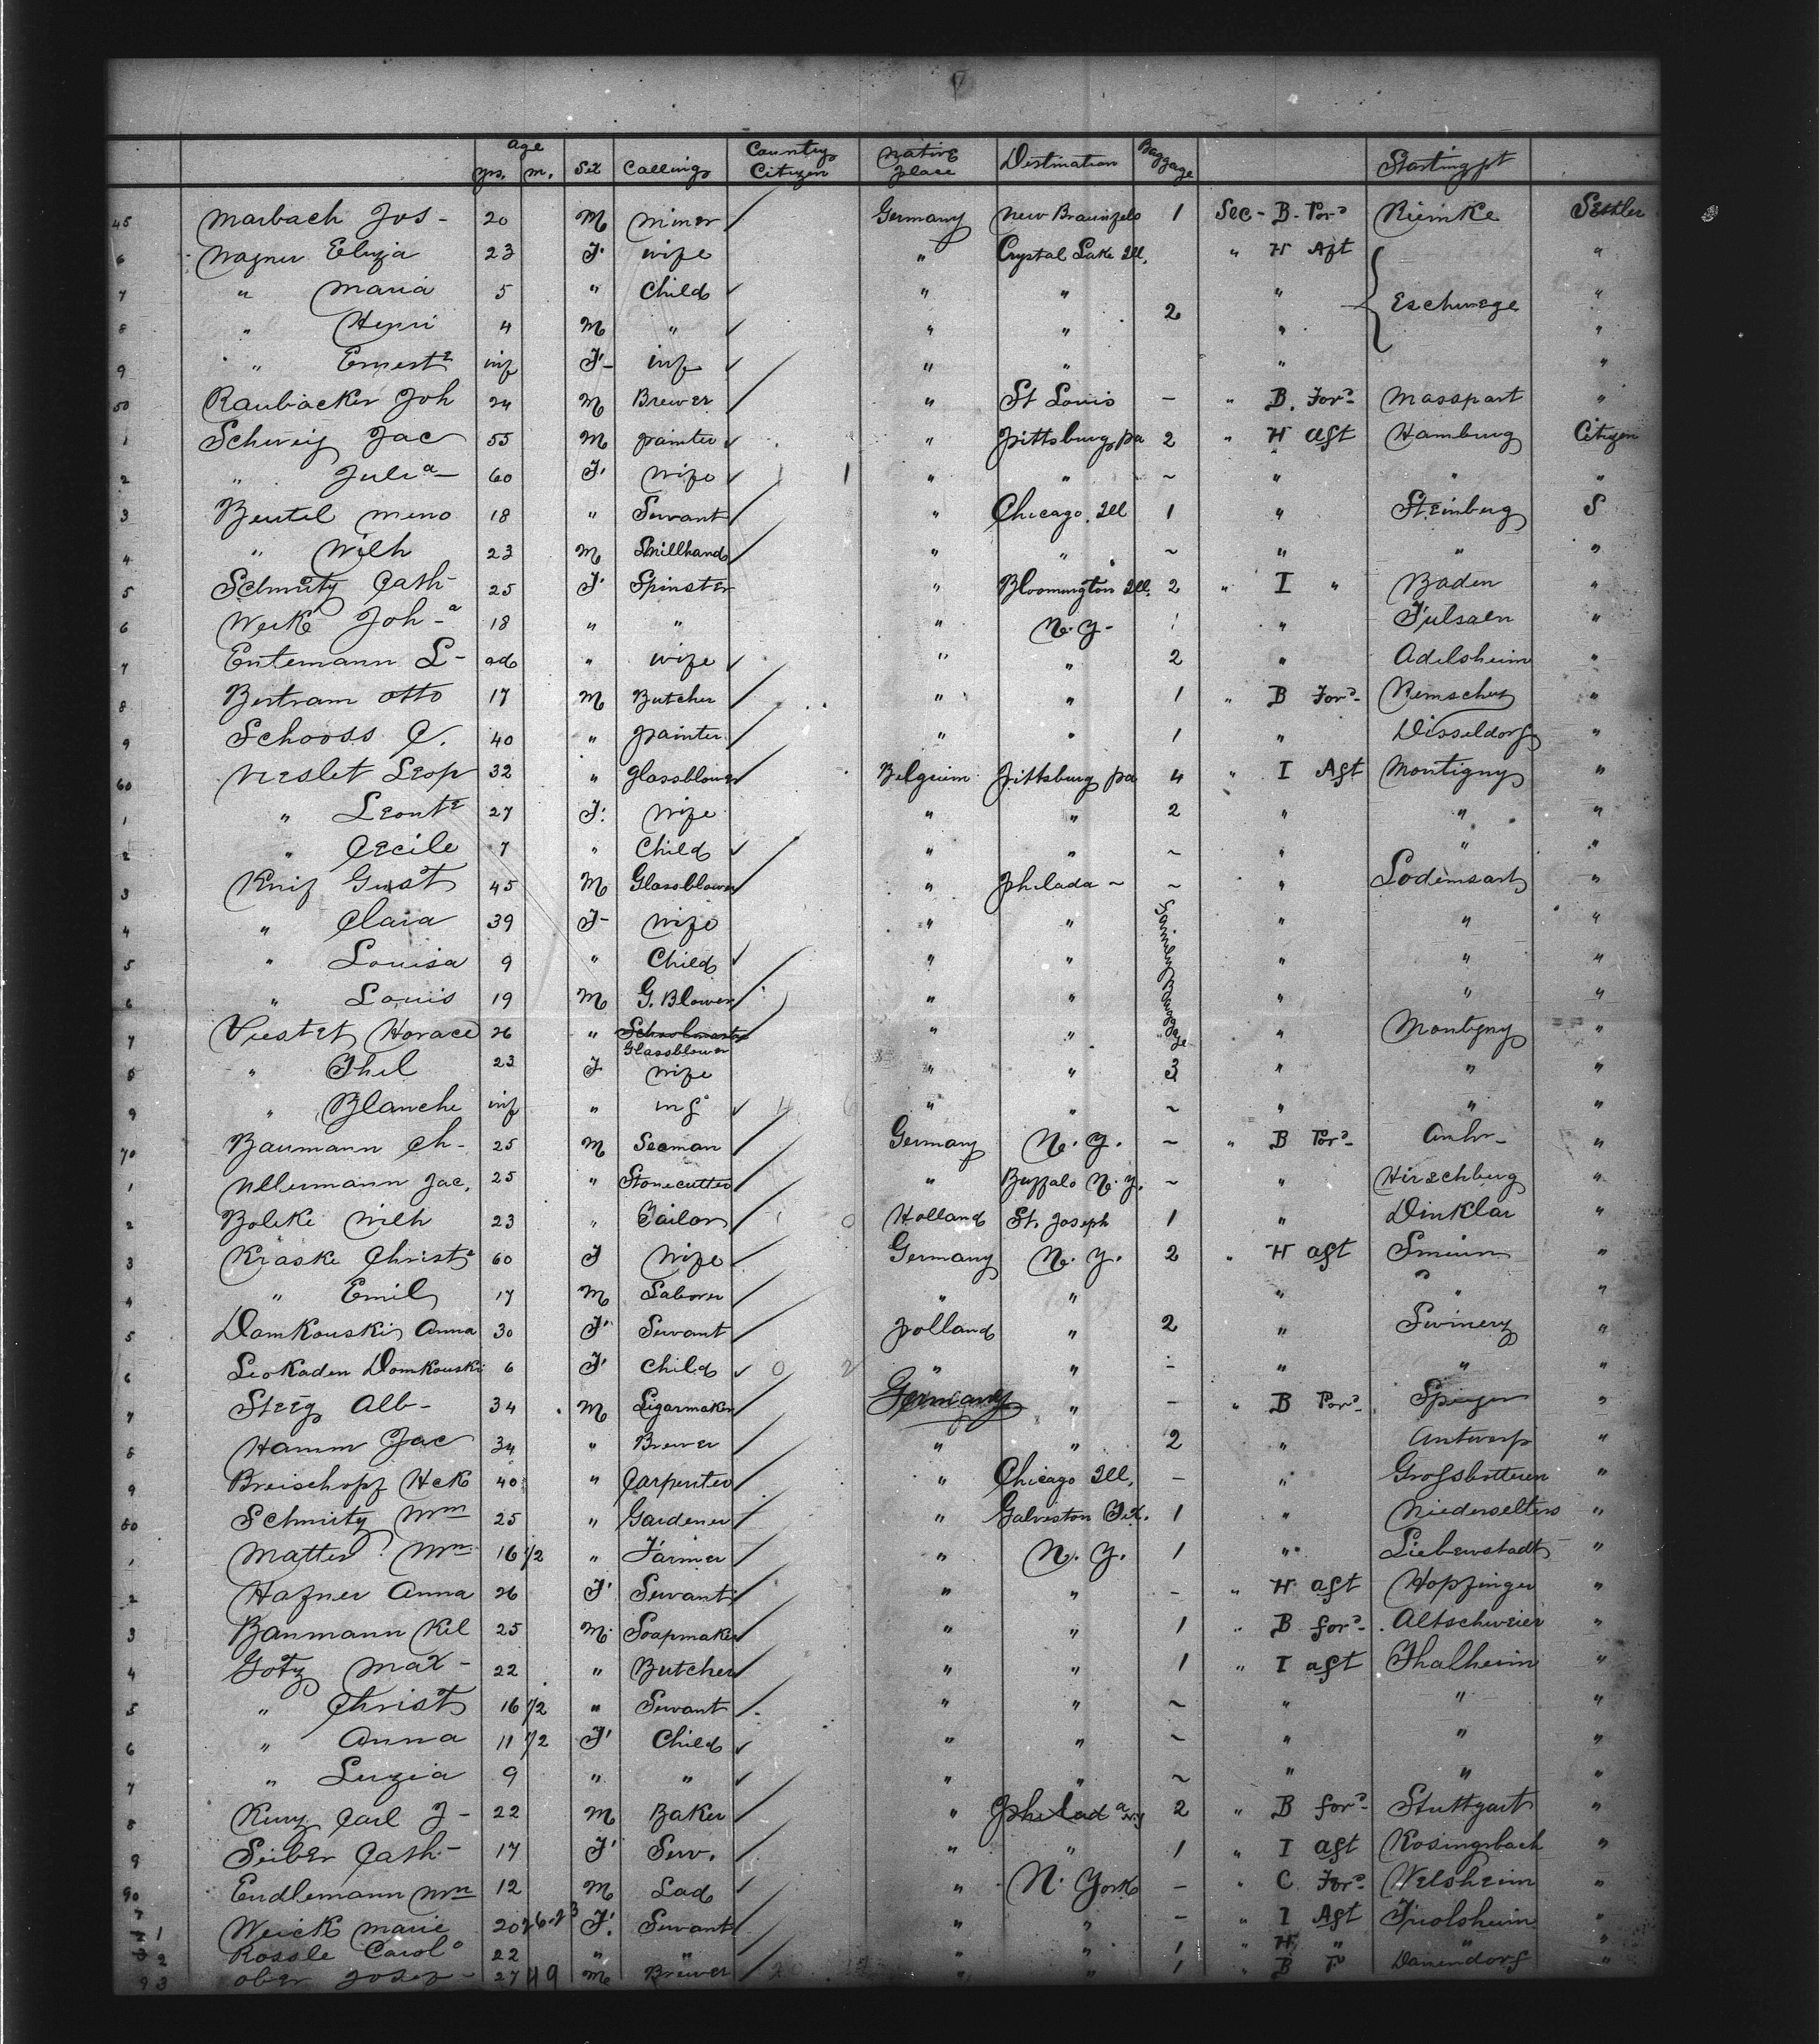 Age Country Native Baggage
yrs. m. Sex Calling Citizen place Destination Startingpt
45 Marbach Jos - 20 M miner Germany New Braunfels 1 Sec - B. For^d Riemke Settler
6 Wagner Eliza 23 F. wife " Crystal Lake Ill. " H Aft "
7 " Maria 5 " Child " " " Eschwege "
8 " Henri 4 M " " " 2 " "
9 " Ernest^e inf F- inf " " " "
50 Raubacker Joh 24 M Brewer " St Louis - " B. For^d Masspart "
1 Schweig Jac 55 M painter " Pittsburg pa 2 " H aft Hamburg Citizen
2 " Juli^a - 60 F. wife " " ~ " " "
3 Beutel Meno 18 " Servant " Chicago. Ill 1 " Steinburg S
4 " Wilh 23 M Millhand " " ~ " " "
5 Schmitz Cath - 25 F Spinster " Bloomington Ill. 2 " I " Baden "
6 Werke Joh -^a 18 " " " N. Y. " "
7 Entemann L - ad " wife " " 2 " Adelsheim "
8 Bertram Otto 17 M Butcher " " 1 " B For^d Remscheid "
9 Schooss C. 40 " painter " " 1 " Disseldorf "
60 Leop 32 " glassblower Belgium Pittsburg pa 4 " I Aft Montigny "
1 " Leont^e 27 F. wife " " 2 " " "
2 " Cecile 7 " Child " " ~ " " "
3 Knif Gust 45 M Glassblower " Philada ~ ~ " Lodemsart "
4 " Clara 39 F- wife " " Family Baggage " " "
5 " Louisa 9 " Child " " " " "
6 " Louis 19 M G. Blower " " " " "
7 Viestet Horace 26 " Glassblower " " " Montigny "
8 " Thel 23 F wife " " 3 " " "
9 " Blanche inf " inf " " ~ " " "
70 Baumann Ch - 25 M Seaman Germany N. Y. ~ " B For^d Anhr - "
1 Ullermann Jac. 25 " Stonecutter " Buffalo N. Y. ~ " Hirschberg "
2 Bolske Wilh 23 " Tailor Holland St. Joseph 1 " Dinklar "
3 Kraske Christ^e 60 F wife Germany N. Y. 2 " H aft "
4 " Emil 17 M Laborer " " " " "
5 Domkouski Anna 30 F Servant Polland " 2 " Swinery "
6 Leokaden Domkouski 6 F Child " " - " " "
7 Steig Alb - 34 M Cigarmaker Germany " - " B For^d Speyer "
8 Hamm Jac 34 " Brewer " " 2 " Antwerp "
9 Breischopf Hck 40 " Carpenter " Chicago Ill. - " Grossbotteren "
80 Schmitz Wm 25 " Gardener " Galveston Tex. 1 " Niederselters "
1 Matter Wm 16 1/2 " Farmer " N. Y. 1 " Liebenstadt "
2 Hafner Anna 26 F Servant " " - " H aft Hopfingen "
3 Banmann Kil 25 M Soapmaker " " 1 " B for^d Altschweier "
4 Gotz Max - 22 " Butcher " " 1 " I aft Thalheim "
5 " Christ 16 1/2 " Servant " " ~ " " "
6 " Anna 11 1/2 F Child " " ~ " " "
7 " Luzia 9 " " " " ~ " " "
8 Kurz Carl J - 22 M Baker " Philad^a 2 " B for^d Stuttgart "
9 Seiber Cath - 17 F Serv. " " 1 " I aft Rosingsbach "
90 Endlemann Wm 12 M Lad " N. York - " C For^d Welsheim "
1 Weick Marie 20 F. Servant " " - " I Aft Frolsheim "
2 Rossle Carol^e 22 " " " " 1 " H " " "
93 Ober Josef - 27 49 M Brewer " " 1 " B F^d Danendorf "